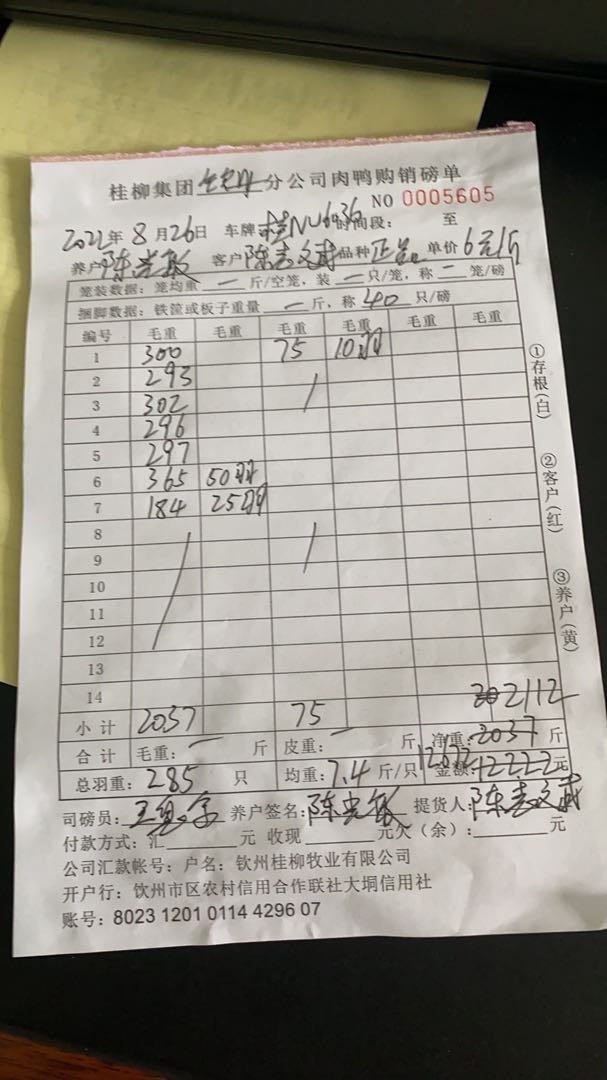 桂柳集团 分公司肉鸭购销磅单
NO 0005605
2022年 8月26日 车牌 桂NU6036 时间段： 至
养户 陈光敏 客户 陈志文武 品种 正品 单价 6元/斤
笼装数据：笼均重 一 斤/空笼，装 一 只/笼，称 一 笼/磅
捆脚数据：铁筐或板子重量 一 斤，称 40 只/磅
编号 毛重 毛重 毛重 毛重 毛重
1 300 75 10羽
2 293
3 302
4 296
5 297
6 365 50羽
7 184 25羽
8
9
10
11
12
13
14
2112
小计 2037 75
合计 毛重：一 斤 皮重：一 斤 净重：2037 斤
总羽重：285 只 均重：7.4 斤/只 12672 金额：12222元
司磅员： 养户签名：陈光敏 提货人：陈志文武
付款方式：汇 元 收现 元欠（余）： 元
公司汇款帐号：户名：钦州桂柳牧业有限公司
开户行：钦州市区农村信用合作联社大垌信用社
账号：8023 1201 0114 4296 07
①存根（白）
②客户（红）
③养户（黄）